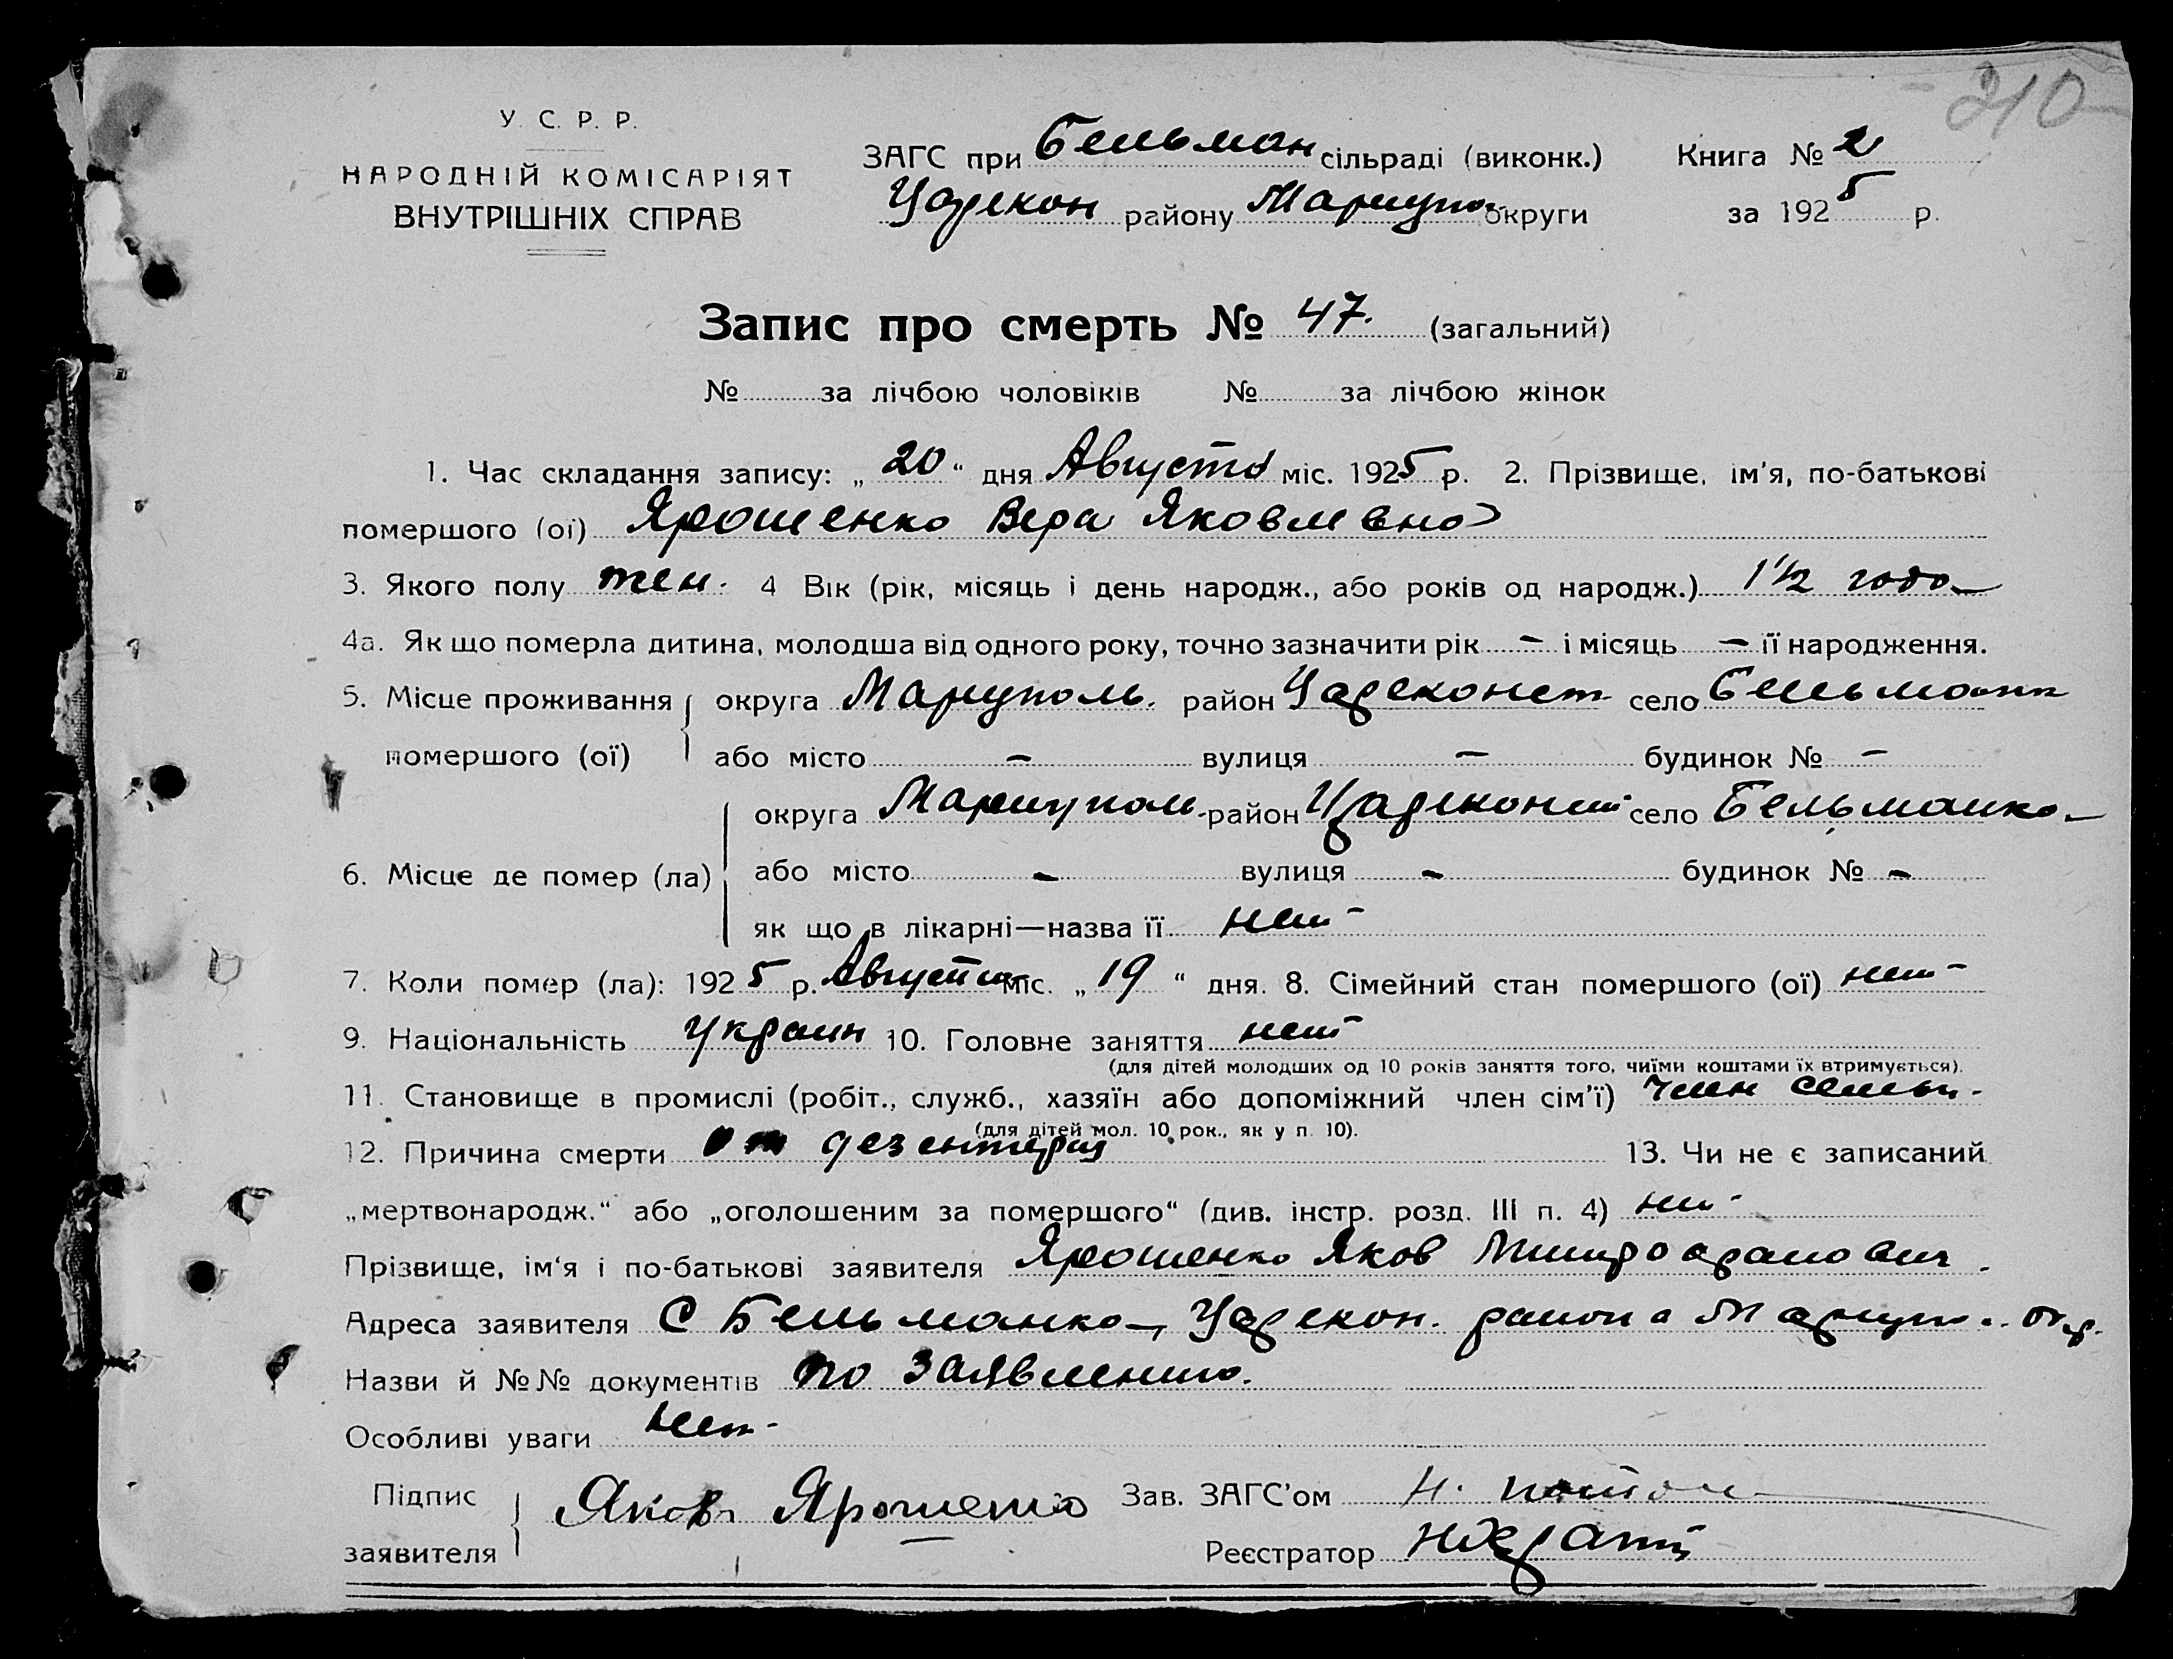 210
У. С. Р. Р.
НАРОДНІЙ КОМІСАРІЯТ
ВНУТРІШНІХ СПРАВ
ЗАГС при Бельман сільраді (виконк.) Книга № 2
Царекон району Мариупо округи за 1925 р.
Запис про смерть № 47. (загальний)
№ за лічбою чоловіків № за лічбою жінок
1. Час складання запису: „20“ дня Августа міс. 1925 р. 2. Прізвище, ім'я, по-батькові
помершого (ої) Ярошенко Вера Яковлевна
3. Якого полу жен. 4 Вік (рік, місяць і день народж., або років од народж.) 1½ года
4а. Як що померла дитина, молодша від одного року, точно зазначити рік – і місяць – її народження.
5. Місце проживання округа Мариуполь. район Цареконст село
помершого (ої) або місто – вулиця – будинок № –
округа Мариупол. район село Бельманка
6. Місце де помер (ла) або місто – вулиця – будинок № –
як що в лікарні—назва її нет –
7. Коли помер (ла): 1925 р. Августа міс. „19“ дня. 8. Сімейний стан помершого (ої) нет –
9. Національність Украин 10. Головне заняття нет
(для дітей молодших од 10 років заняття того, чиїми коштами їх втримується).
11. Становище в промислі (робіт., служб., хазяїн або допоміжний член сім'ї) член семьи.
(для дітей мол. 10 рок., як у п. 10).
12. Причина смерти от дезентерия 13. Чи не є записаний
„мертвонародж.“ або „оголошеним за помершого“ (див. інстр. розд. III п. 4) нет
Прізвище, ім'я і по-батькові заявителя Ярошенко Яков
Адреса заявителя С Бельманка, Царекон. района Мариуп. Окр.
Назви й №№ документів по заявлению.
Особливі уваги Нет.
Підпис заявителя Яков Ярошенко Зав. ЗАГС'ом Н.
Реєстратор